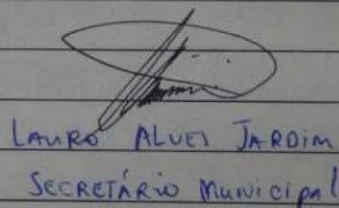 LAURO ALVES JARDIM
SECRETÁRIO MUNICIPAL